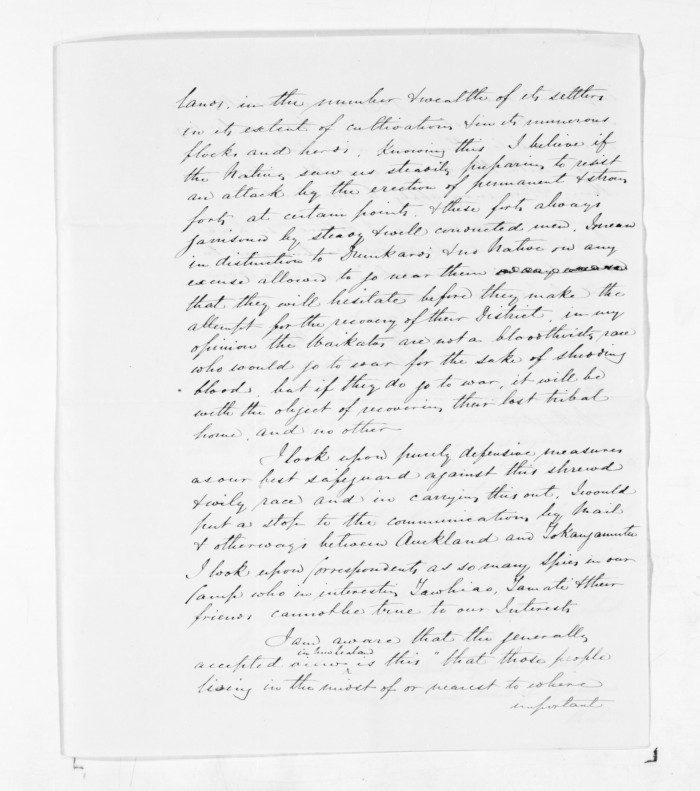 lands, in the number & wealth of its settlers
in its extent of cultivations & in its numerous
flocks and herds. Knowing this I believe if
the Natives saw us steadily preparing to resist
an attack by the erection of permanent & strong
forts at certain points, & these forts always
garrisoned by steady & well conducted men, I mean
in distinction to Drunkards & no Native on any
excuse allowed to go near them
that they will hesitate before they make the
attempt for the recovery of their District, in my
opinion the Waikatos are not a bloodthirsty race
who would go to war for the sake of shedding
blood, but if they do go to war, it will be
with the object of recovering their lost tribal
home, and no other
I look upon purely defensive measures
as our best safeguard against this shrewd
& wily race and in carrying this out, I would
put a stop to the communications by Mail
& otherways between Auckland and Tokangamutu
I look upon Correspondents as so many Spies in our
Camp who in interesting Tawhiao, Tamati & their
friends cannot be true to our Interests
I am aware that the generally
in New Zealand
accepted view is this "that those people
living in the midst of or nearest to where
important